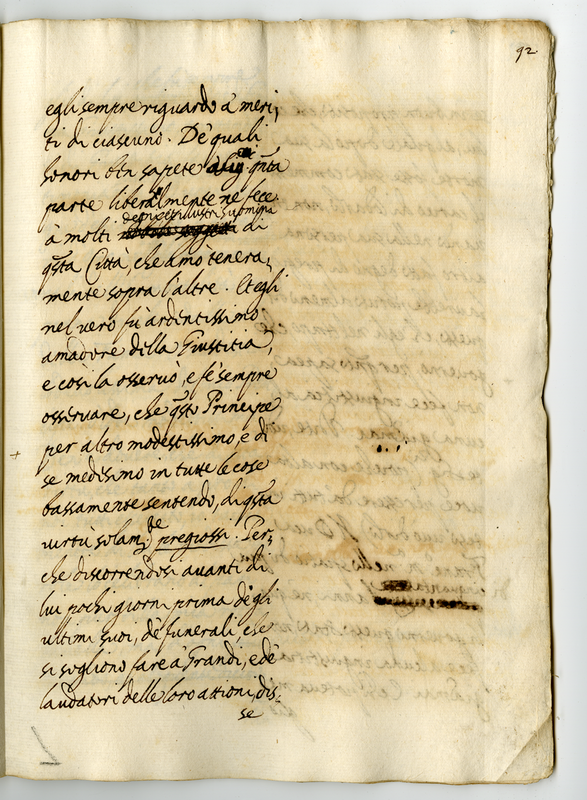 92
egli sempre riguardo à meri,
ti di ciascuno. De quali
honori ben sapete qnta
parte liberalmente ne fece
de principali illustri huomini
à molti di
qsta Città, che amò tenera,
mente sopra l'altre. Et egli
nel vero fù ardentissimo
amadore della Giustitia,
e così la osseruò, e fè sempre
osseruare, che qsto Principe
per altro modestissimo, e di
se medesimo in tutte le cose
bassamente sentendo, di qsta
virtù solam.te pregiossi. Per,
che discorrendosi auanti di
lui pochi giorni prima degli
ultimi suoi, de funerali, che
si sogliono fare à Grandi, e de
laudatori delle loro attioni, dis,
se